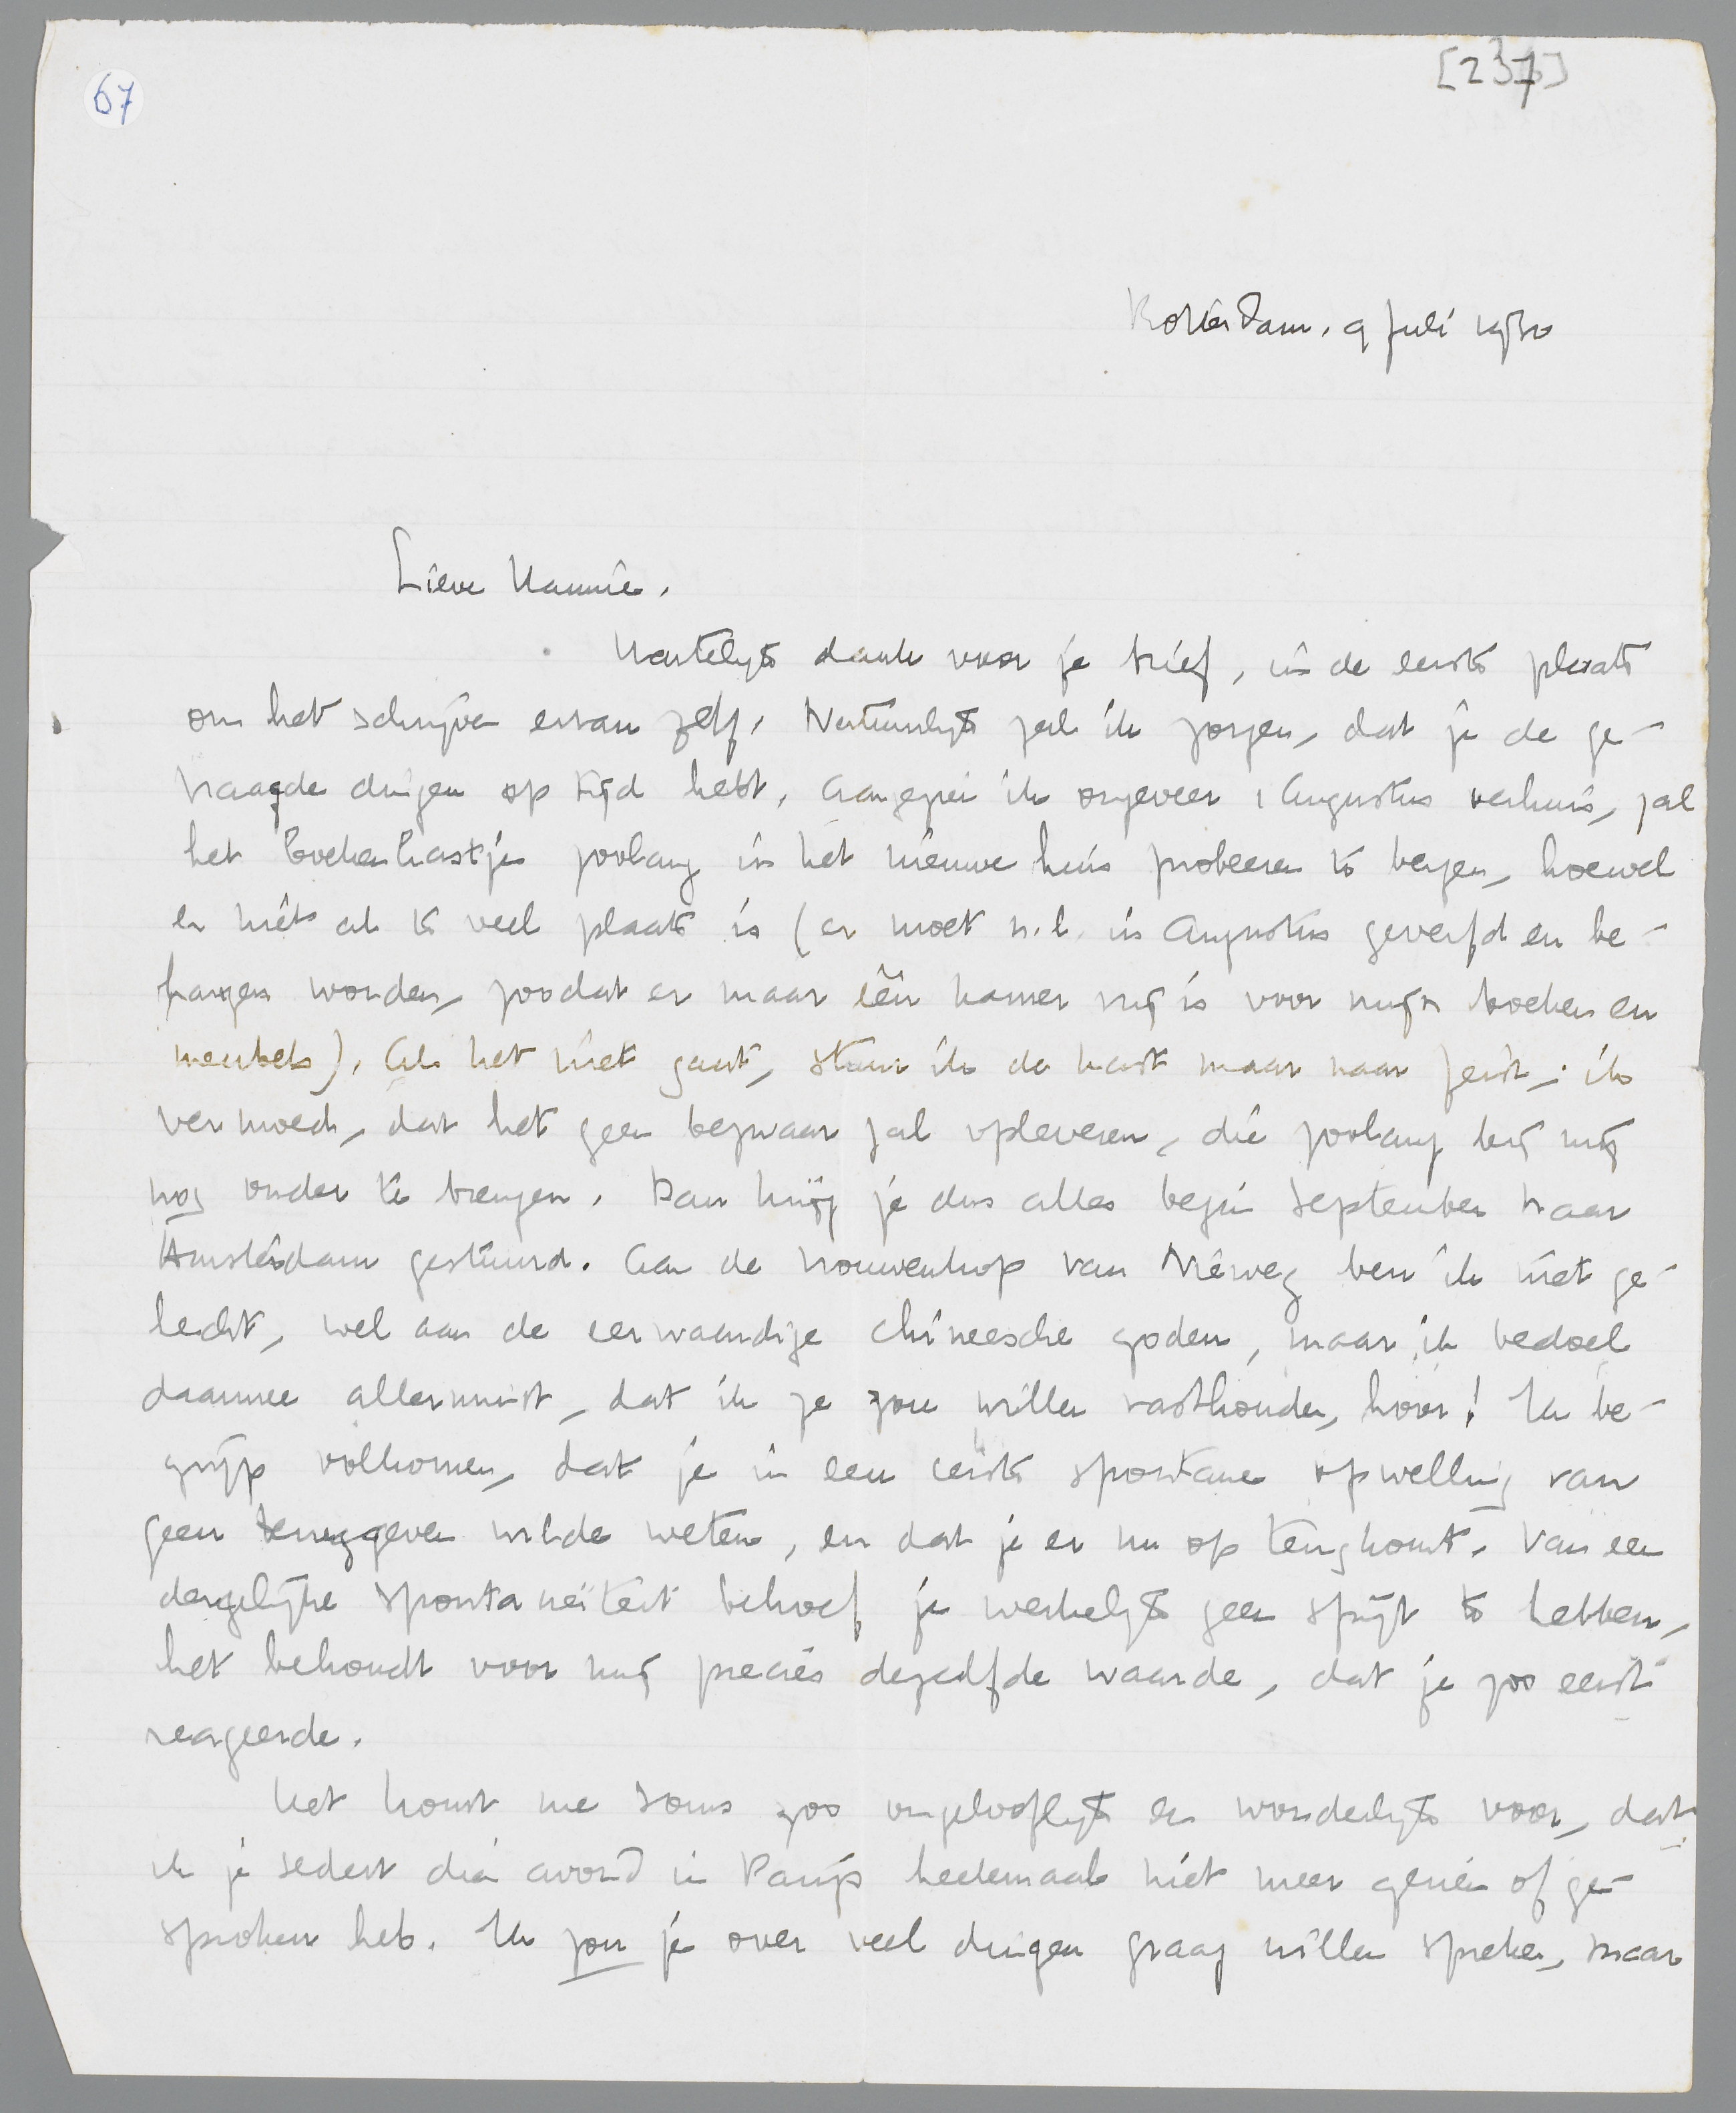 67
[237]
Rotterdam, 9 Juli 1930
Lieve Hannie,
Hartelijk dank voor je brief, in de eerste plaats
om het schrijven ervan zelf. Natuurlijk zal ik zorgen, dat je de ge-
vraagde dingen op tijd hebt. Aangezien ik ongeveer 1 Augustus verhuis, zal
het boekenkastje zoolang in het nieuwe huis probeeren te bergen, hoewel
er niet al te veel plaats is (er moet n.l. in Augustus geverfd en be-
hangen worden, zoodat er maar één kamer vrij is voor mijn boeken en
meubels). Als het niet gaat, stuur ik de kast maar naar Zeist; ik
vermoed, dat het geen bezwaar zal opleveren, die zoolang bij mij
nog onder te brengen. Dan krijg je dus alles begin September naar
Amsterdam gestuurd. Aan de vrouwenkop van Méweg ben ik niet ge-
hecht, wel aan de eerwaardige chineesche goden, maar ik bedoel
daarmee allerminst, dat ik ze zou willen vasthouden, hoor! Ik be-
grijp volkomen, dat je in een eerste spontane opwelling van
geen teruggeven wilde weten, en dat je er nu op terugkomt. Van een
dergelijke spontaneïteit behoef je werkelijk geen spijt te hebben,
het behoudt voor mij precies dezelfde waarde, dat je zoo eerst
reageerde.
Het komt me soms zoo ongelooflijk en wonderlijk voor, dat
ik je sedert dien avond in Parijs heelemaal niet meer gezien of ge-
sproken heb. Ik zou je over veel dingen graag willen spreken, maar